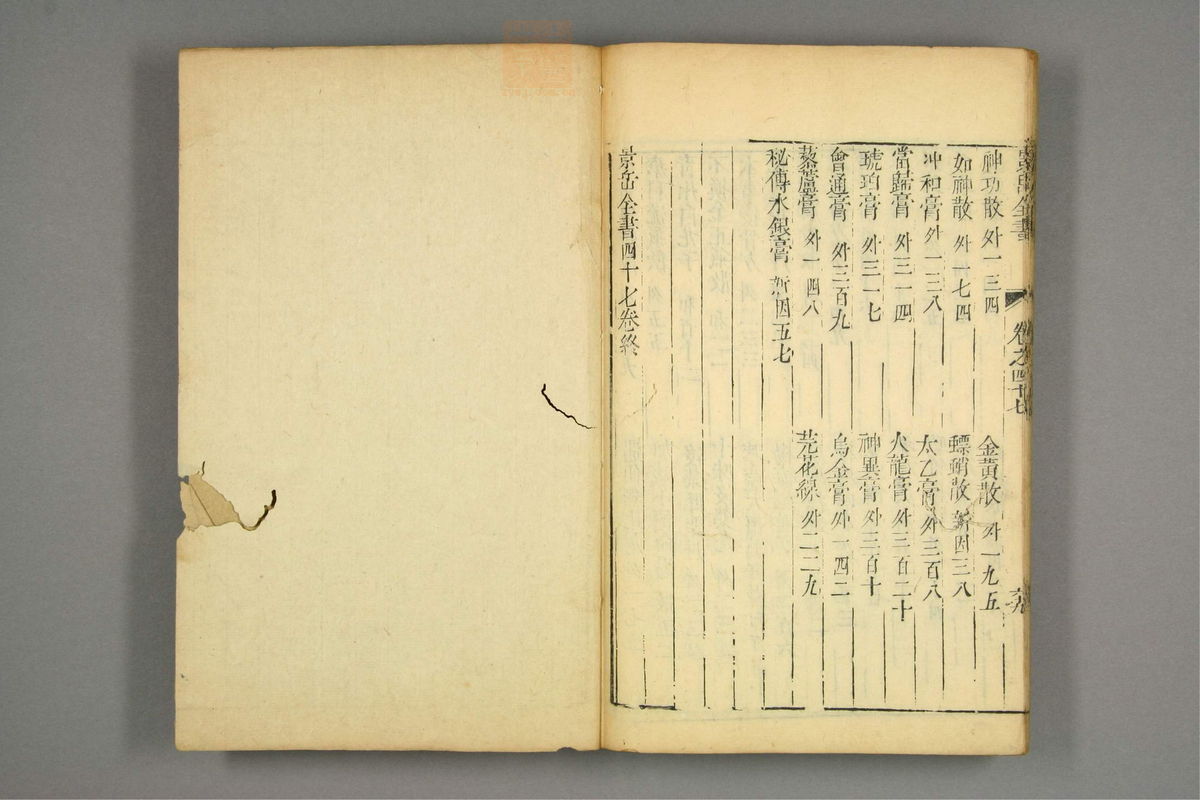 景岳全書
卷之四十七
六九
神功散 外一三四
金黃散 外一九五
如神散 外七四
螵蛸散 新因三八
冲和膏 外一三八
太乙膏 外三百八
當歸膏 外三一四
火龍膏 外三百二十
琥珀膏 外三一七
神異膏 外三百十
會通膏 外三百九
烏金膏 外一四二
藜蘆膏 外一四八
芫花線 外二二九
秘傳水銀膏 新因五七
景岳全書四十七卷終